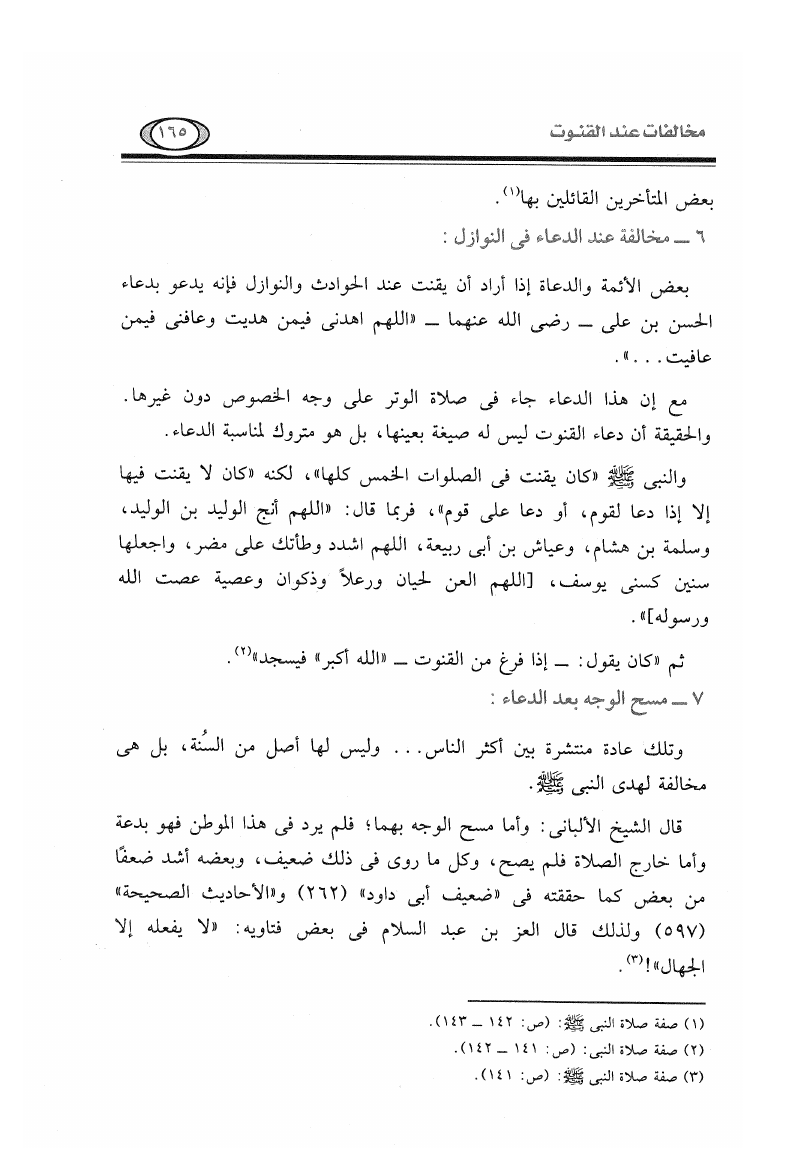 مخالفات عند القنوت
١٦٥
بعض المتأخرين القائلين بها(١).
٦ ــ مخالفة عند الدعاء فى النوازل :
بعض الأئمة والدعاة إذا أراد أن يقنت عند الحوادث والنوازل فإنه يدعو بدعاء
الحسن بن على ــ رضى الله عنهما ــ «اللهم اهدنى فيمن هديت وعافنى فيمن
عافيت...».
مع إن هذا الدعاء جاء فى صلاة الوتر على وجه الخصوص دون غيرها.
والحقيقة أن دعاء القنوت ليس له صيغة بعينها، بل هو متروك لمناسبة الدعاء.
والنبى ﷺ «كان يقنت فى الصلوات الخمس كلها»، لكنه «كان لا يقنت فيها
إلا إذا دعا لقوم، أو دعا على قوم»، فربما قال: «اللهم أنج الوليد بن الوليد،
وسلمة بن هشام، وعياش بن أبى ربيعة، اللهم اشدد وطأتك على مضر، واجعلها
سنين كسنى يوسف، [اللهم العن لحيان ورعلاً وذكوان وعصية عصت الله
ورسوله]».
ثم «كان يقول: ــ إذا فرغ من القنوت ــ «الله أكبر» فيسجد»(٢).
٧ ــ مسح الوجه بعد الدعاء :
وتلك عادة منتشرة بين أكثر الناس... وليس لها أصل من السُنة، بل هى
مخالفة لهدى النبى ﷺ.
قال الشيخ الألبانى: وأما مسح الوجه بهما؛ فلم يرد فى هذا الموطن فهو بدعة
وأما خارج الصلاة فلم يصح، وكل ما روى فى ذلك ضعيف، وبعضه أشد ضعفًا
من بعض كما حققته فى «ضعيف أبى داود» (٢٦٢) و«الأحاديث الصحيحة»
(٥٩٧) ولذلك قال العز بن عبد السلام فى بعض فتاويه: «لا يفعله إلا
الجهال»!(٣).
(١) صفة صلاة النبى ﷺ: (ص: ١٤٢ ــ ١٤٣).
(٢) صفة صلاة النبى: (ص: ١٤١ ــ ١٤٢).
(٣) صفة صلاة النبى ﷺ: (ص: ١٤١).